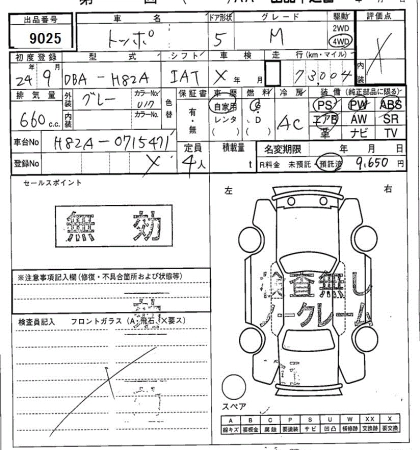 出品番号 車名 ドア形状 グレード 駆動 評価点
9025 トッポ 5 M 2WD 4WD X
初度登録 型式 シフト 車検 走行(km・マイル) 内装
24年9月 DBA-H82A IAT X年 月 73,004
排気量 外装 カラーNo 色替 保証書 車歴 燃料 冷房 装備(純正部品に限る)
660c.c. グレー U17 有・無 自家用 レンタ G D AC PS PW ABS
内装 カラーNo エアB AW SR
革 ナビ TV
車台No H82A-0715471 定員 積載量 名変期限 年 月 日
登録No X 4人 t R料金 未預託・預託済 9,650円
セールスポイント
無効
左 右
※注意事項記入欄(修復・不具合箇所および状態等)
検査無し
ノークレーム
検査員記入 フロントガラス(A・飛石、X要ス)
スペア
A B C P S U W X XX
線キズ 要板金 腐蝕 要塗装 サビ 凹凸 補修跡 交換跡 要交換